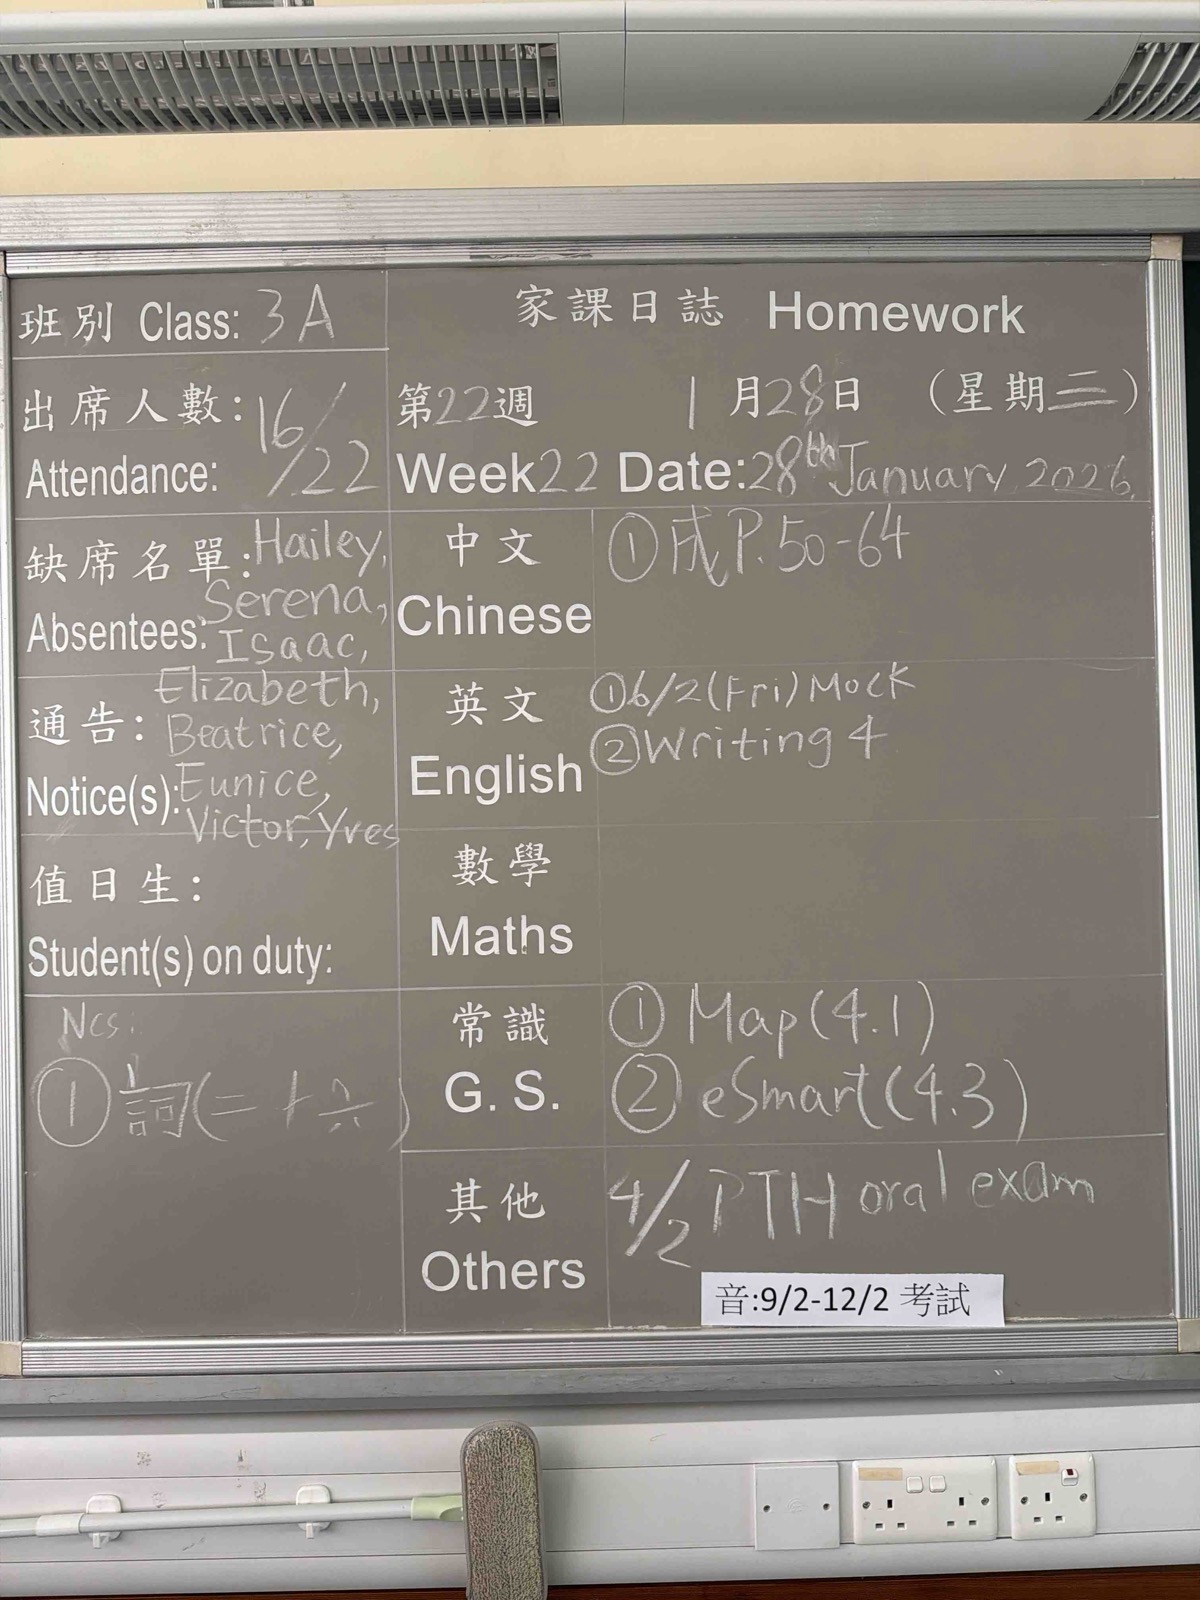 班別 Class: 3A
家課日誌 Homework
出席人數: 16/22
Attendance:
第22週 1月28日 (星期三)
Week22 Date:28th January 2026.
缺席名單: Hailey,
Absentees: Serena,
Isaac,
Elizabeth,
通告: Beatrice,
Notice(s): Eunice,
Victor, Yves
值日生:
Student(s) on duty:
Ncs:
①詞(二十六)
中文 ①成P.50-64
Chinese
英文 ①6/2(Fri)Mock
English ②Writing 4
數學
Maths
常識 ①Map(4.1)
G. S. ②eSmart(4.3)
其他 4/2 PTH oral exam
Others
音:9/2-12/2 考試